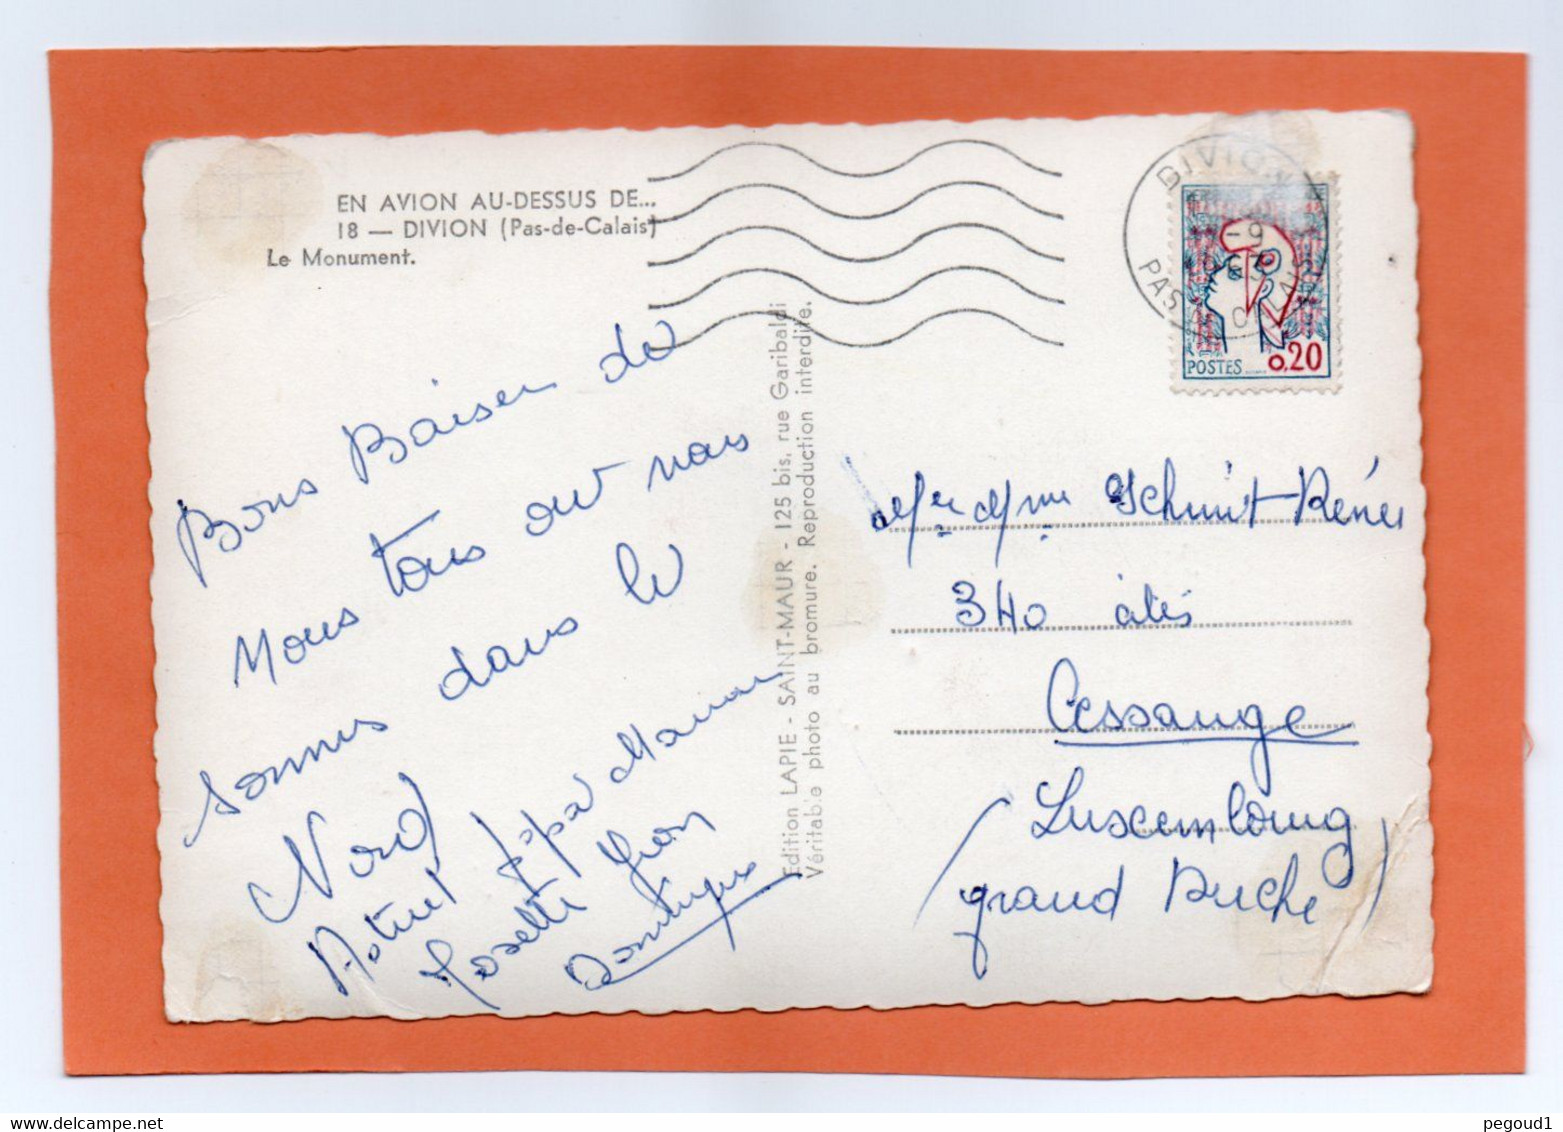 EN AVION AU-DESSUS DE...
18 — DIVION (Pas-de-Calais)
Le Monument.
Bons Baiser de
Nous tous ou nous
sommes dans le
Nord
papa Maman
Rosette Yvon
Dominique
Edition LAPIE - SAINT-MAUR - 125 bis, rue Garibaldi
Véritable photo au bromure. Reproduction interdite.
DIVION
PAS DE CALAIS
POSTES 0,20
Mr et Mme Schmit Rénée
340 cités
Cessange
Luxembourg
(grand Duché)
pegoud1